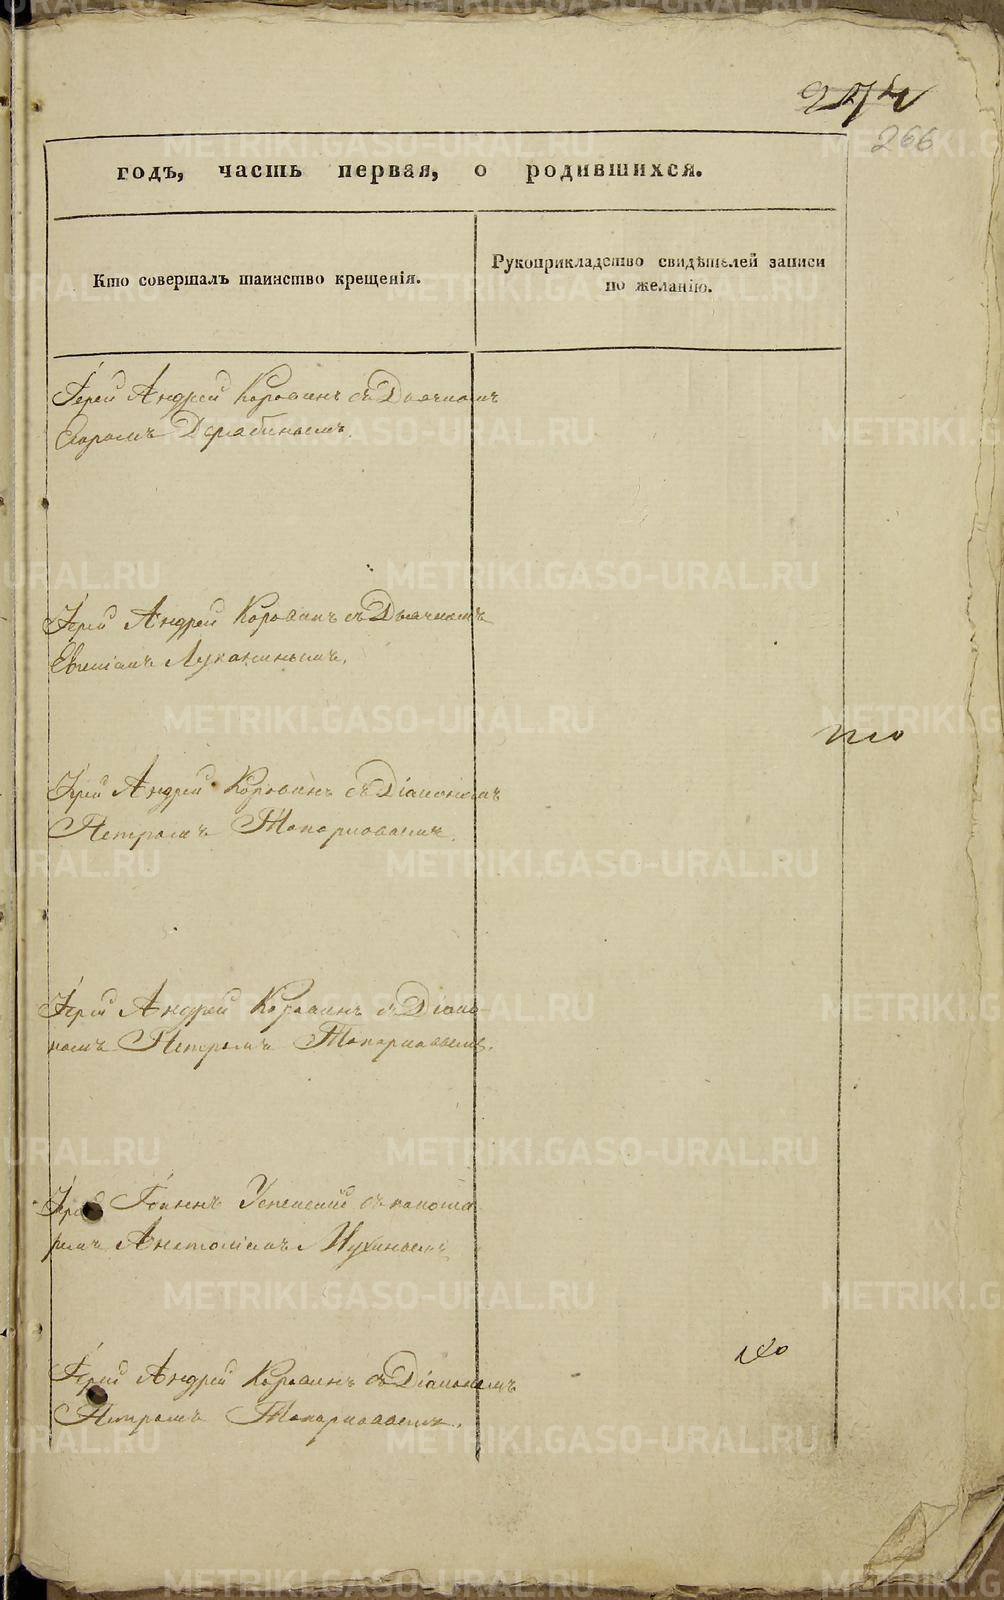 274
266
годъ, часть первая, о родившихся.
Кто совершалъ таинство крещенія.
Рукоприкладство свидѣтелей записи
по желанію.
Іерей Андрей Коровинъ съ Дьячкомъ
Дерябинымъ.
Іерей Андрей Коровинъ съ Дьячкомъ
Евгеніемъ Луканинымъ.
Іерей Андрей Коровинъ съ Діакономъ
Петромъ Топорковымъ.
Іерей Андрей Коровинъ съ Діако-
номъ Петромъ Топорковымъ.
Іерей Іоаннъ Успенскій съ пономо
ремъ Анатоліемъ Мухинымъ
Іерей Андрей Коровинъ съ Діакономъ
Петромъ Топорковымъ.
METRIKI.GASO-URAL.RU